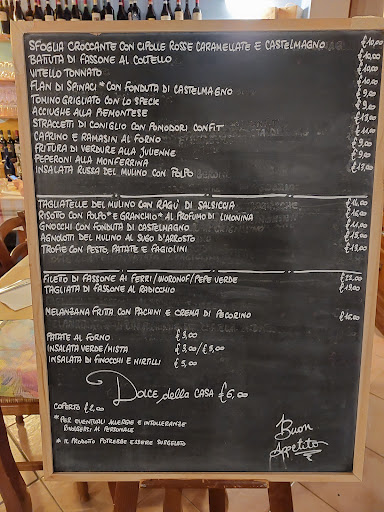 SFOGLIA CROCCANTE CON CIPOLLE ROSSE CARAMELLATE E CASTELMAGNO €10,00
BATUTA DI FASSONE AL COLTELLO €10,00
VITELLO TONNATO €10,00
FLAN DI SPINACI * CON FONDUTA DI CASTELMAGNO €10,00
TOMINO GRIGLIATO CON LO SPECK €9,00
ACCIUGHE ALLA PIEMONTESE €9,00
STRACCETTI DI CONIGLIO CON POMODORI CONFIT
CAPRINO E RAMASIN AL FORNO
FRITURA DI VERDURE ALLA JULIENNE €9,00
PEPERONI ALLA MONFERRINA €9,00
INSALATA RUSSA DEL MULINO CON POLPO €13,00
TAGLIATELLE DEL MULINO CON RAGÙ DI SALSICCIA
RISOTTO CON POLPO * E GRANCHIO * AL PROFUMO DI LIMONINA
GNOCCHI CON FONDUTA DI CASTELMAGNO
AGNOLOTTI DEL MULINO AL SUGO D'ARROSTO
TROFIE CON PESTO, PATATE E FAGIOLINI
FILETO DI FASSONE AI FERRI/WORONOF/PEPE VERDE €22,00
TAGLIATA DI FASSONE AL RADICCHIO €19,00
MELANZANA FRITTA CON PACHINI E CREMA DI PECORINO
PATATE AL FORNO €5,00
INSALATA VERDE/MISTA €3,00/€5,00
INSALATA DI FINOCCHI E MIRTILLI €5,00
DOLCE della CASA €6,00
COPERTO €2,00
* PER EVENTUALI ALLERGIE E INTOLLERANZE
RIVOLGERSI AL PERSONALE
* IL PRODOTTO POTREBBE ESSERE SURGELATO
Buon
Appetito